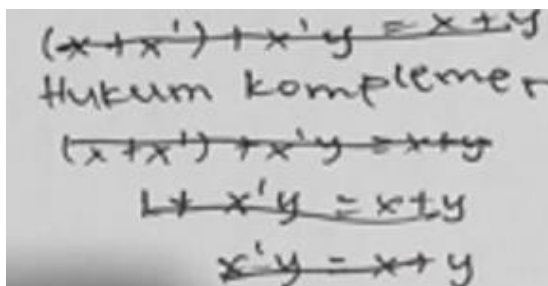 (x+x')+x'y = x+y
Hukum komplemen
(x+x')+x'y = x+y
1+x'y = x+y
x'y = x+y